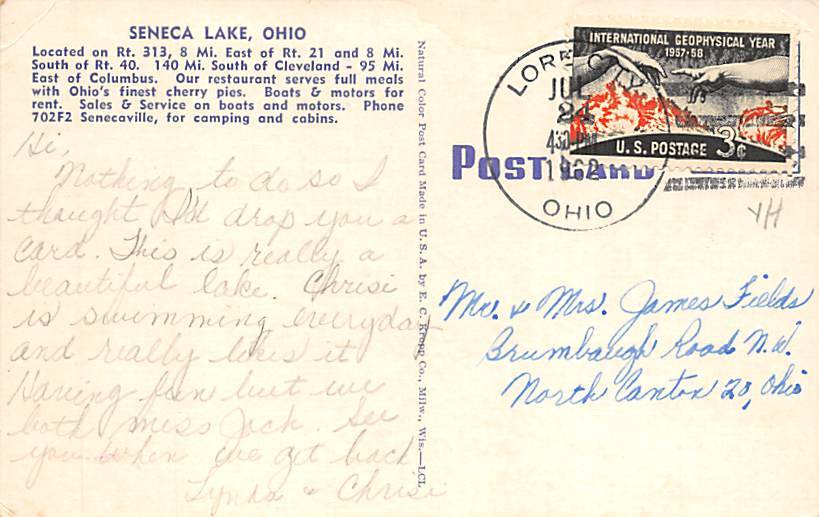 SENECA LAKE, OHIO
Located on Rt. 313, 8 Mi. East of Rt. 21 and 8 Mi.
South of Rt. 40. 140 Mi. South of Cleveland - 95 Mi.
East of Columbus. Our restaurant serves full meals
with Ohio's finest cherry pies. Boats & motors for
rent. Sales & Service on boats and motors. Phone
702F2 Senecaville, for camping and cabins.
Hi,
Nothing to do so I
thought I'll drop you a
card. This is really a
beautiful lake. Chrisi
is swimming everyday
and really likes it
Having fun but we
both miss Jack. See
you when we get back
Lynda & Chrisi
Natural Color Post Card Made in U. S. A. by E. C. Kropp Co., Milw., Wis.—LCL
INTERNATIONAL GEOPHYSICAL YEAR
1957-58
U. S. POSTAGE 3¢
JUL
24
430 PM
1962
OHIO
POST CARD
Mr. & Mrs. James Fields
Brumbaugh Road N.W.
North Canton 20, Ohio